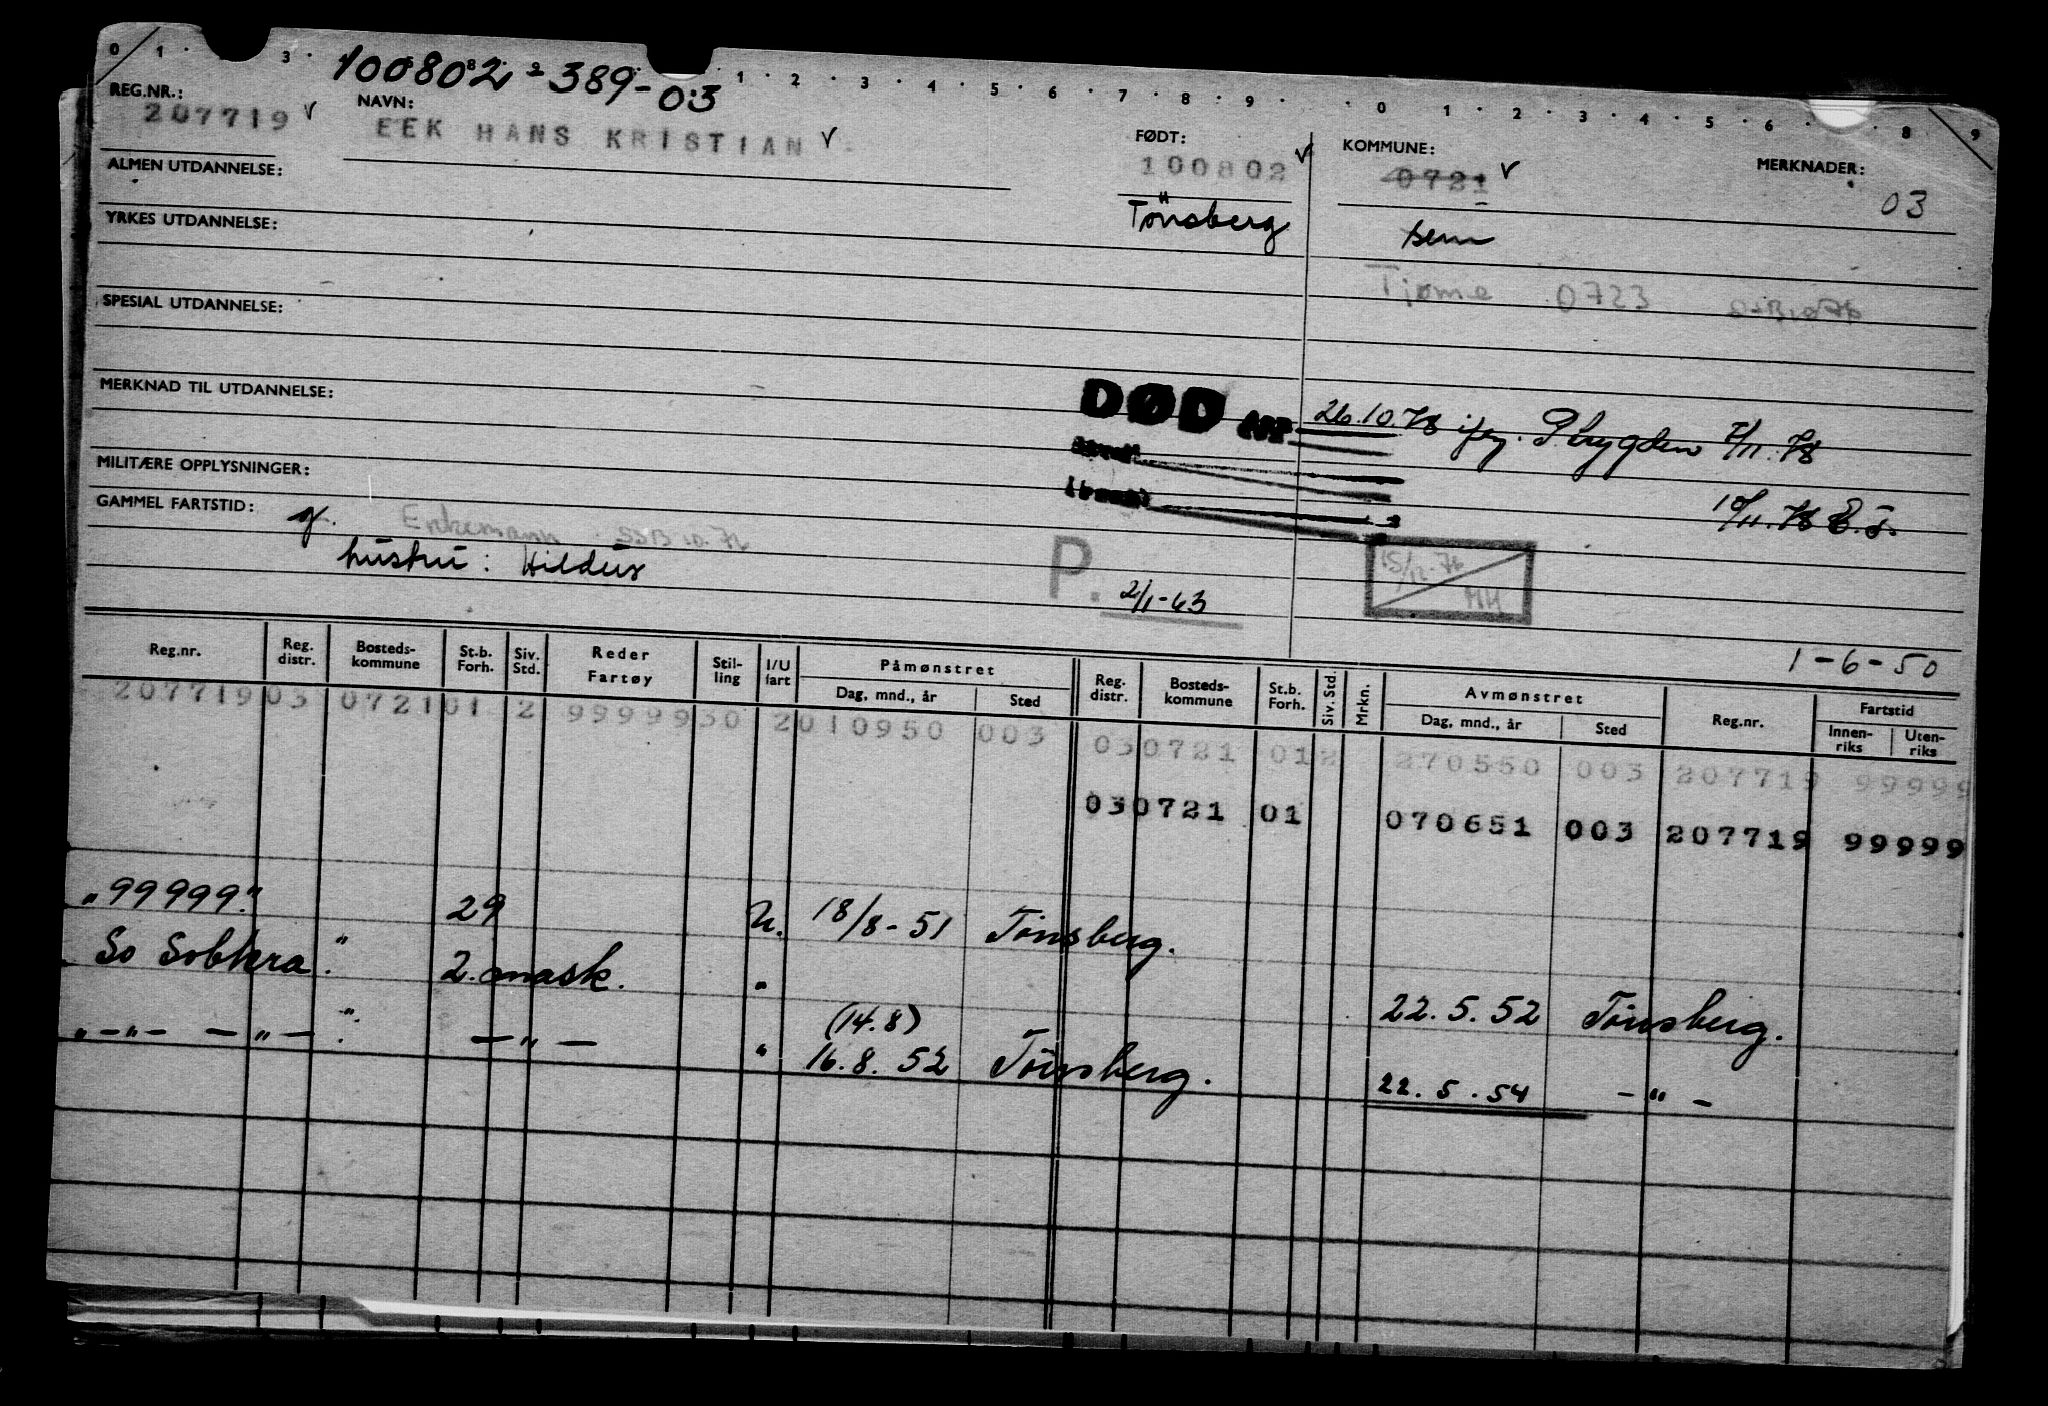 0 1 3 1 2 3 4 5 6 7 8 9 0 1 2 3 4 5 6 8 9
100802 389-03
REG.NR.: 207719 NAVN: EEK HANS KRISTIAN FØDT: 100802 KOMMUNE: 0721 MERKNADER: 03
ALMEN UTDANNELSE:
Tönsberg Sem
YRKES UTDANNELSE:
Tjøme 0723
SPESIAL UTDANNELSE:
MERKNAD TIL UTDANNELSE:
DØD 26.10.78 Trygden 7/11.78
MILITÆRE OPPLYSNINGER:
10/11.78
GAMMEL FARTSTID: gf. Enkemann
hustru: Hildur
P. 2/1-63
15/12-76 MH
1-6-50
Reg.nr. Reg. distr. Bosteds-kommune St.b. Forh. Siv. Std. Reder Fartøy Stil-ling I/U fart Påmønstret Dag, mnd., år Sted Reg. distr. Bosteds-kommune St.b. Forh. Siv. Std. Mrkn. Avmønstret Dag, mnd., år Sted Reg.nr. Fartstid Innen-riks Uten-riks
207719 03 0721 01 2 9999930 2 010950 003 03 0721 01 2 270550 003 207719 99999
03 0721 01 070651 003 207719 99999
"99999" 29 U. 18/8-51 Tönsberg.
So Sobkra " 2. mask. " 22.5.52 Tönsberg.
"-"- -"- " -"- " (14.8)
16.8.52 Tönsberg. 22.5.54 -"-